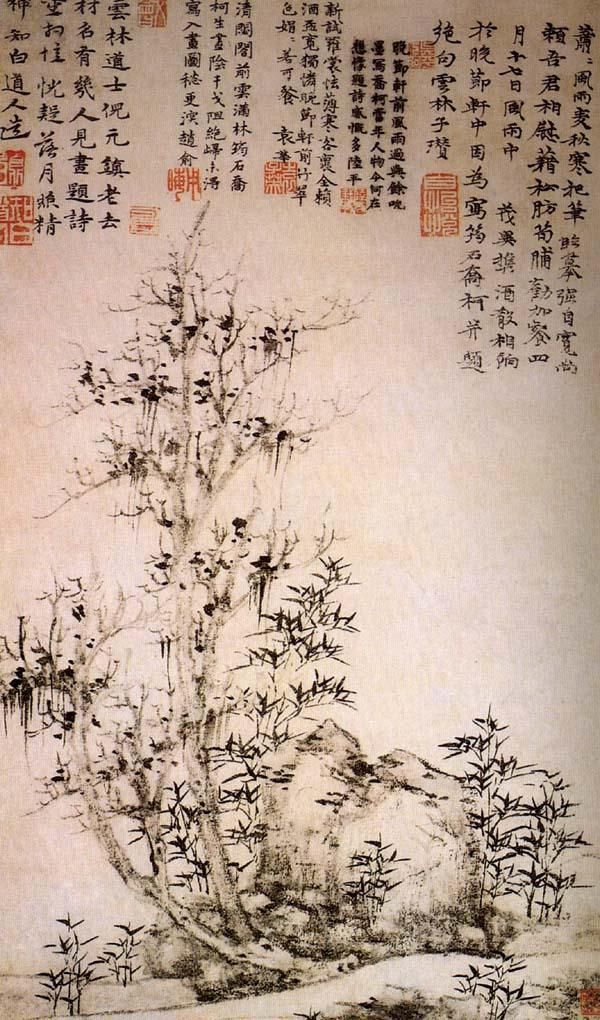 蕭〻風雨麥秋寒把筆臨摹強自寬尚
賴吾君相慰藉松肪筍脯勸加餐四
月十七日風雨中
茂異攜酒殽相餉
於晚節軒中因為寫筠石喬柯并題
絕句雲林子瓚
晚節軒前風雨過興餘吮
墨寫喬柯當年人物今何在
題詩感慨多陸平
新試羅裳怯海寒客裏全賴
酒杯寬獨憐晚節軒前竹翠
色娟〻若可餐 袁華
清閟閣前雲滿林筠石喬
柯生晝陰干戈阻絕歸未得
寫入畫圖愁更深趙俞
雲林道士倪元鎮老去
材名有幾人見畫題詩
恍疑落月精
神知白道人造